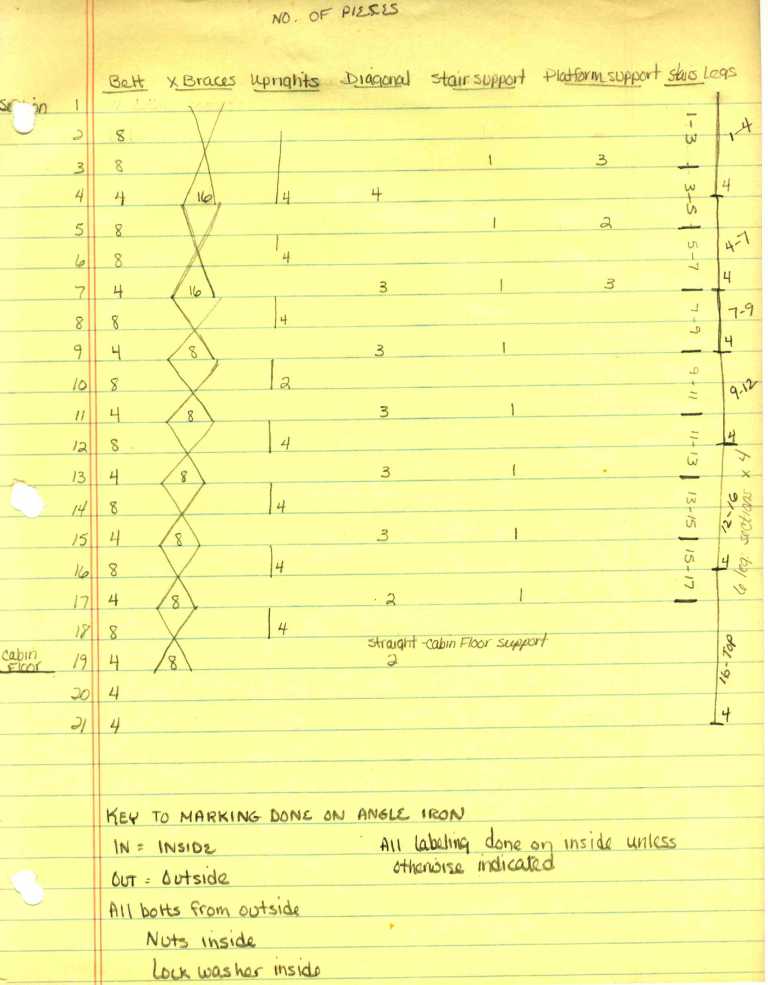 NO. OF PIECES
Belt X Braces Uprights Diagonal Stair support Platform support Stairs Legs
Section 1
2 8 1-3 1-4
3 8 1 3
4 4 16 4 4 3-5 4
5 8 1 2
6 8 4 5-7 4-7
7 4 16 3 1 3 4
8 8 4 7-9 7-9
9 4 8 3 1 4
10 8 2 9-11 9-12
11 4 8 3 1
12 8 4 11-13 4
13 4 8 3 1
14 8 4 13-15 12-16
15 4 8 3 1
16 8 4 15-17 4
6 leg sections x 4
17 4 8 2 1
18 8 4
straight-cabin Floor support
Cabin Floor 19 4 8 2 16-Top
20 4
21 4 4
KEY TO MARKING DONE ON ANGLE IRON
IN = INSIDE All labeling done on inside unless
otherwise indicated
OUT = Outside
All bolts from outside
Nuts inside
Lock washer inside